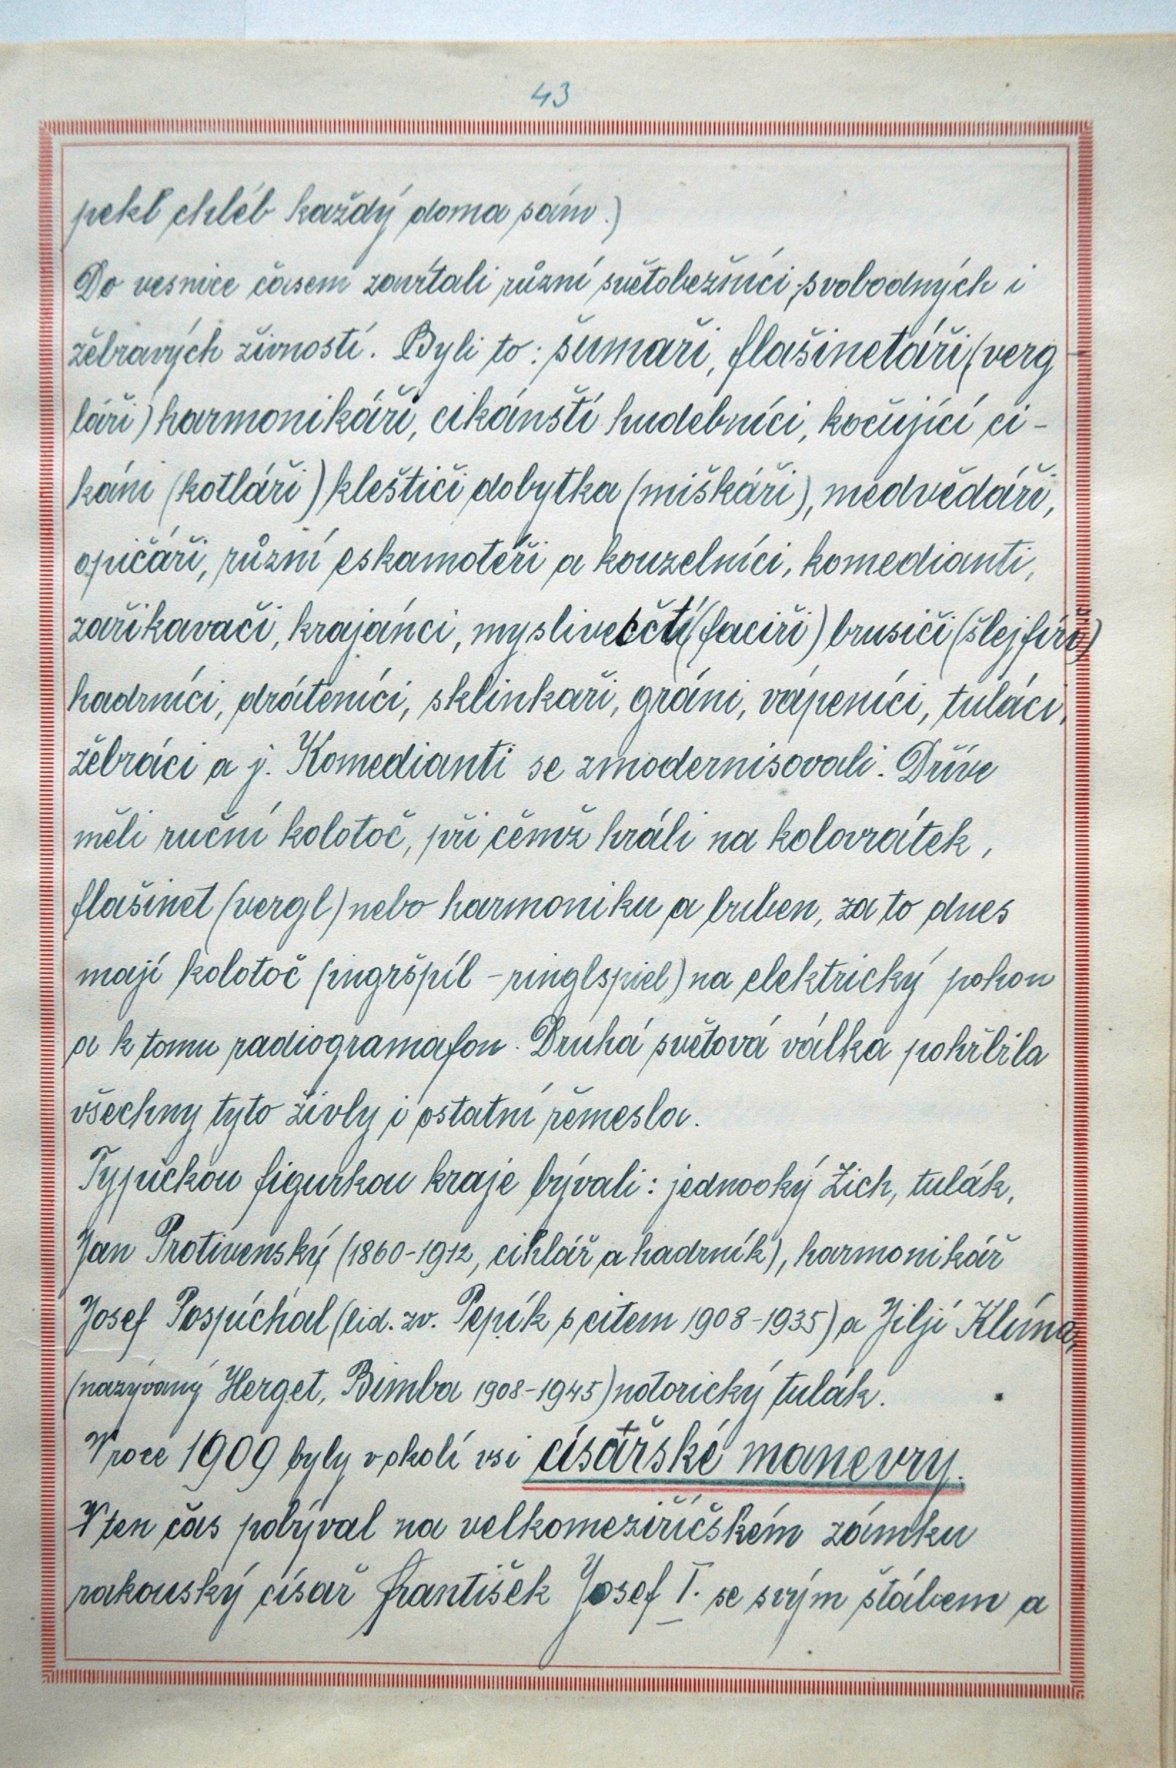 43
pekl chléb každý doma sám.)
Do vesnice časem zavítali různí světoběžníci svobodných i
žebravých živností. Byli to: šumaři, flašinetáři (verg-
láři) harmonikáři, cikánští hudebníci, kočující ci-
káni (kotláři) kleštiči dobytka (miškáři), medvědáři,
opičáři, různí eskamotéři a kouzelníci, komedianti,
zaříkavači, krajánci, myslivečtí (faciři) brusiči (šlejfíři)
hadrníci, dráteníci, sklinkaři, gráni, vápeníci, tuláci,
žebráci a j. Komedianti se zmodernisovali. Dříve
měli ruční kolotoč, při čemž hráli na kolovrátek,
flašinet (vergl) nebo harmoniku a buben, za to dnes
mají kolotoč (ringršpíl - ringlspiel) na elektrický pohon
a k tomu radiogramafon. Druhá světová válka pohřbila
všechny tyto živly i ostatní řemesla.
Typickou figurkou kraje bývali: jednooký Žich, tulák,
Jan Protivenský (1860-1912, cihlář a hadrník), harmonikář
Josef Pospíchal (lid. zv. Pepík s citem 1908-1935) a Jiljí Klíma,
(nazývaný Herget, Bimba 1908-1945) notorický tulák.
V roce 1909 byly v okolí vsi císařské manevry.
V ten čas pobýval na velkomeziříčském zámku
rakouský císař František Josef I. se svým štábem a